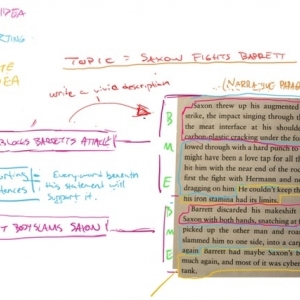 IDEA
TOPIC = SAXON FIGHTS BARRETT
IDEA
write a vivid description
(NARRATIVE
Saxon threw up his augmented
strike, the impact singing through
the meat interface at his should
carbon-plastic cracking under the fo
lowed through with a hard punch to
might have been a love tap for all
hit him with the near end of the ro
first the fight with Hermann and no
dragging on him. He couldn't keep th
his iron stamina had its limits.
Barrett discarded his makeshift
Saxon with both hands, snatching at
picked up the other man and roar
slammed him to one side, into a car
again. Barrett had maybe Saxon's b
much again, and most of it was cyber
tank.
B
M
E
B
M
E
BLOCKS BARRETT'S ATTACK
= Everyword beneath
this statement will
support it.
BODYSLAMS SAXON